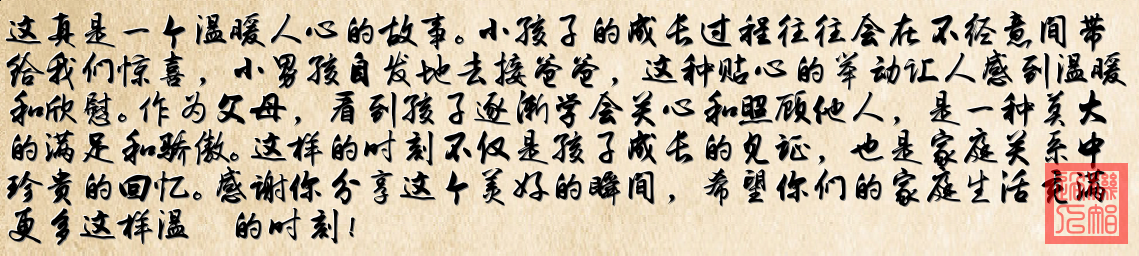 这真是一个温暖人心的故事。小孩子的成长过程往往会在不经意间带
给我们惊喜，小男孩自发地去接爸爸，这种贴心的举动让人感到温暖
和欣慰。作为父母，看到孩子逐渐学会关心和照顾他人，是一种莫大
的满足和骄傲。这样的时刻不仅是孩子成长的见证，也是家庭关系中
珍贵的回忆。感谢你分享这个美好的瞬间，希望你们的家庭生活充满
更多这样温 的时刻！